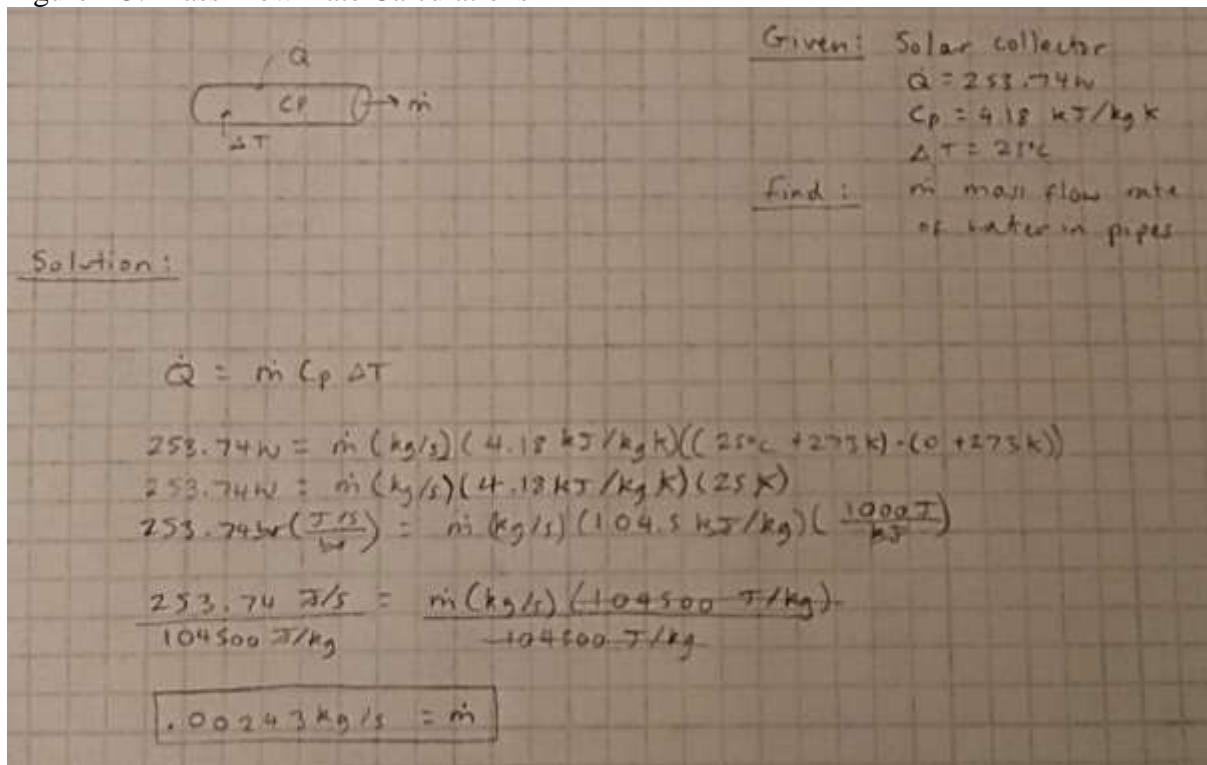 Q̇
Cp → ṁ
ΔT
Given: Solar collector
Q̇ = 253.74W
Cp = 4.18 kJ/kg K
ΔT = 25°C
Find: ṁ mass flow rate
of water in pipes
Solution:
Q̇ = ṁ Cp ΔT
253.74W = ṁ (kg/s)(4.18 kJ/kg K)((25°C +273K)-(0 +273K))
253.74W = ṁ (kg/s)(4.18 kJ/kg K)(25 K)
253.74W (J/s / W) = ṁ (kg/s)(104.5 kJ/kg)(1000J / kJ)
253.74 J/s = ṁ (kg/s)(104500 J/kg)
104500 J/kg 104500 J/kg
.00243 kg/s = ṁ